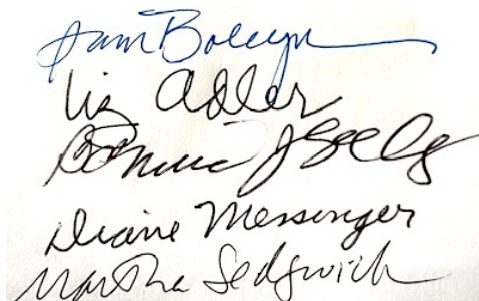 Pam Boleyn
Liz Adler
Bonnie J Seely
Diane Messinger
Martha Sedgwick